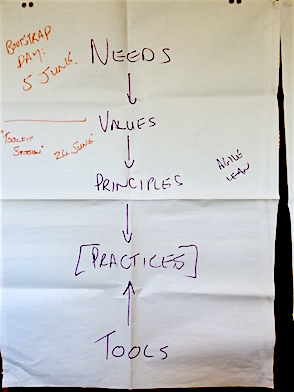 BOOTSTRAP
DAY:
5 JUNE.
NEEDS
VALUES
"TOOLKIT
SESSION"
24 JUNE
PRINCIPLES
AGILE
LEAN
[PRACTICES]
TOOLS